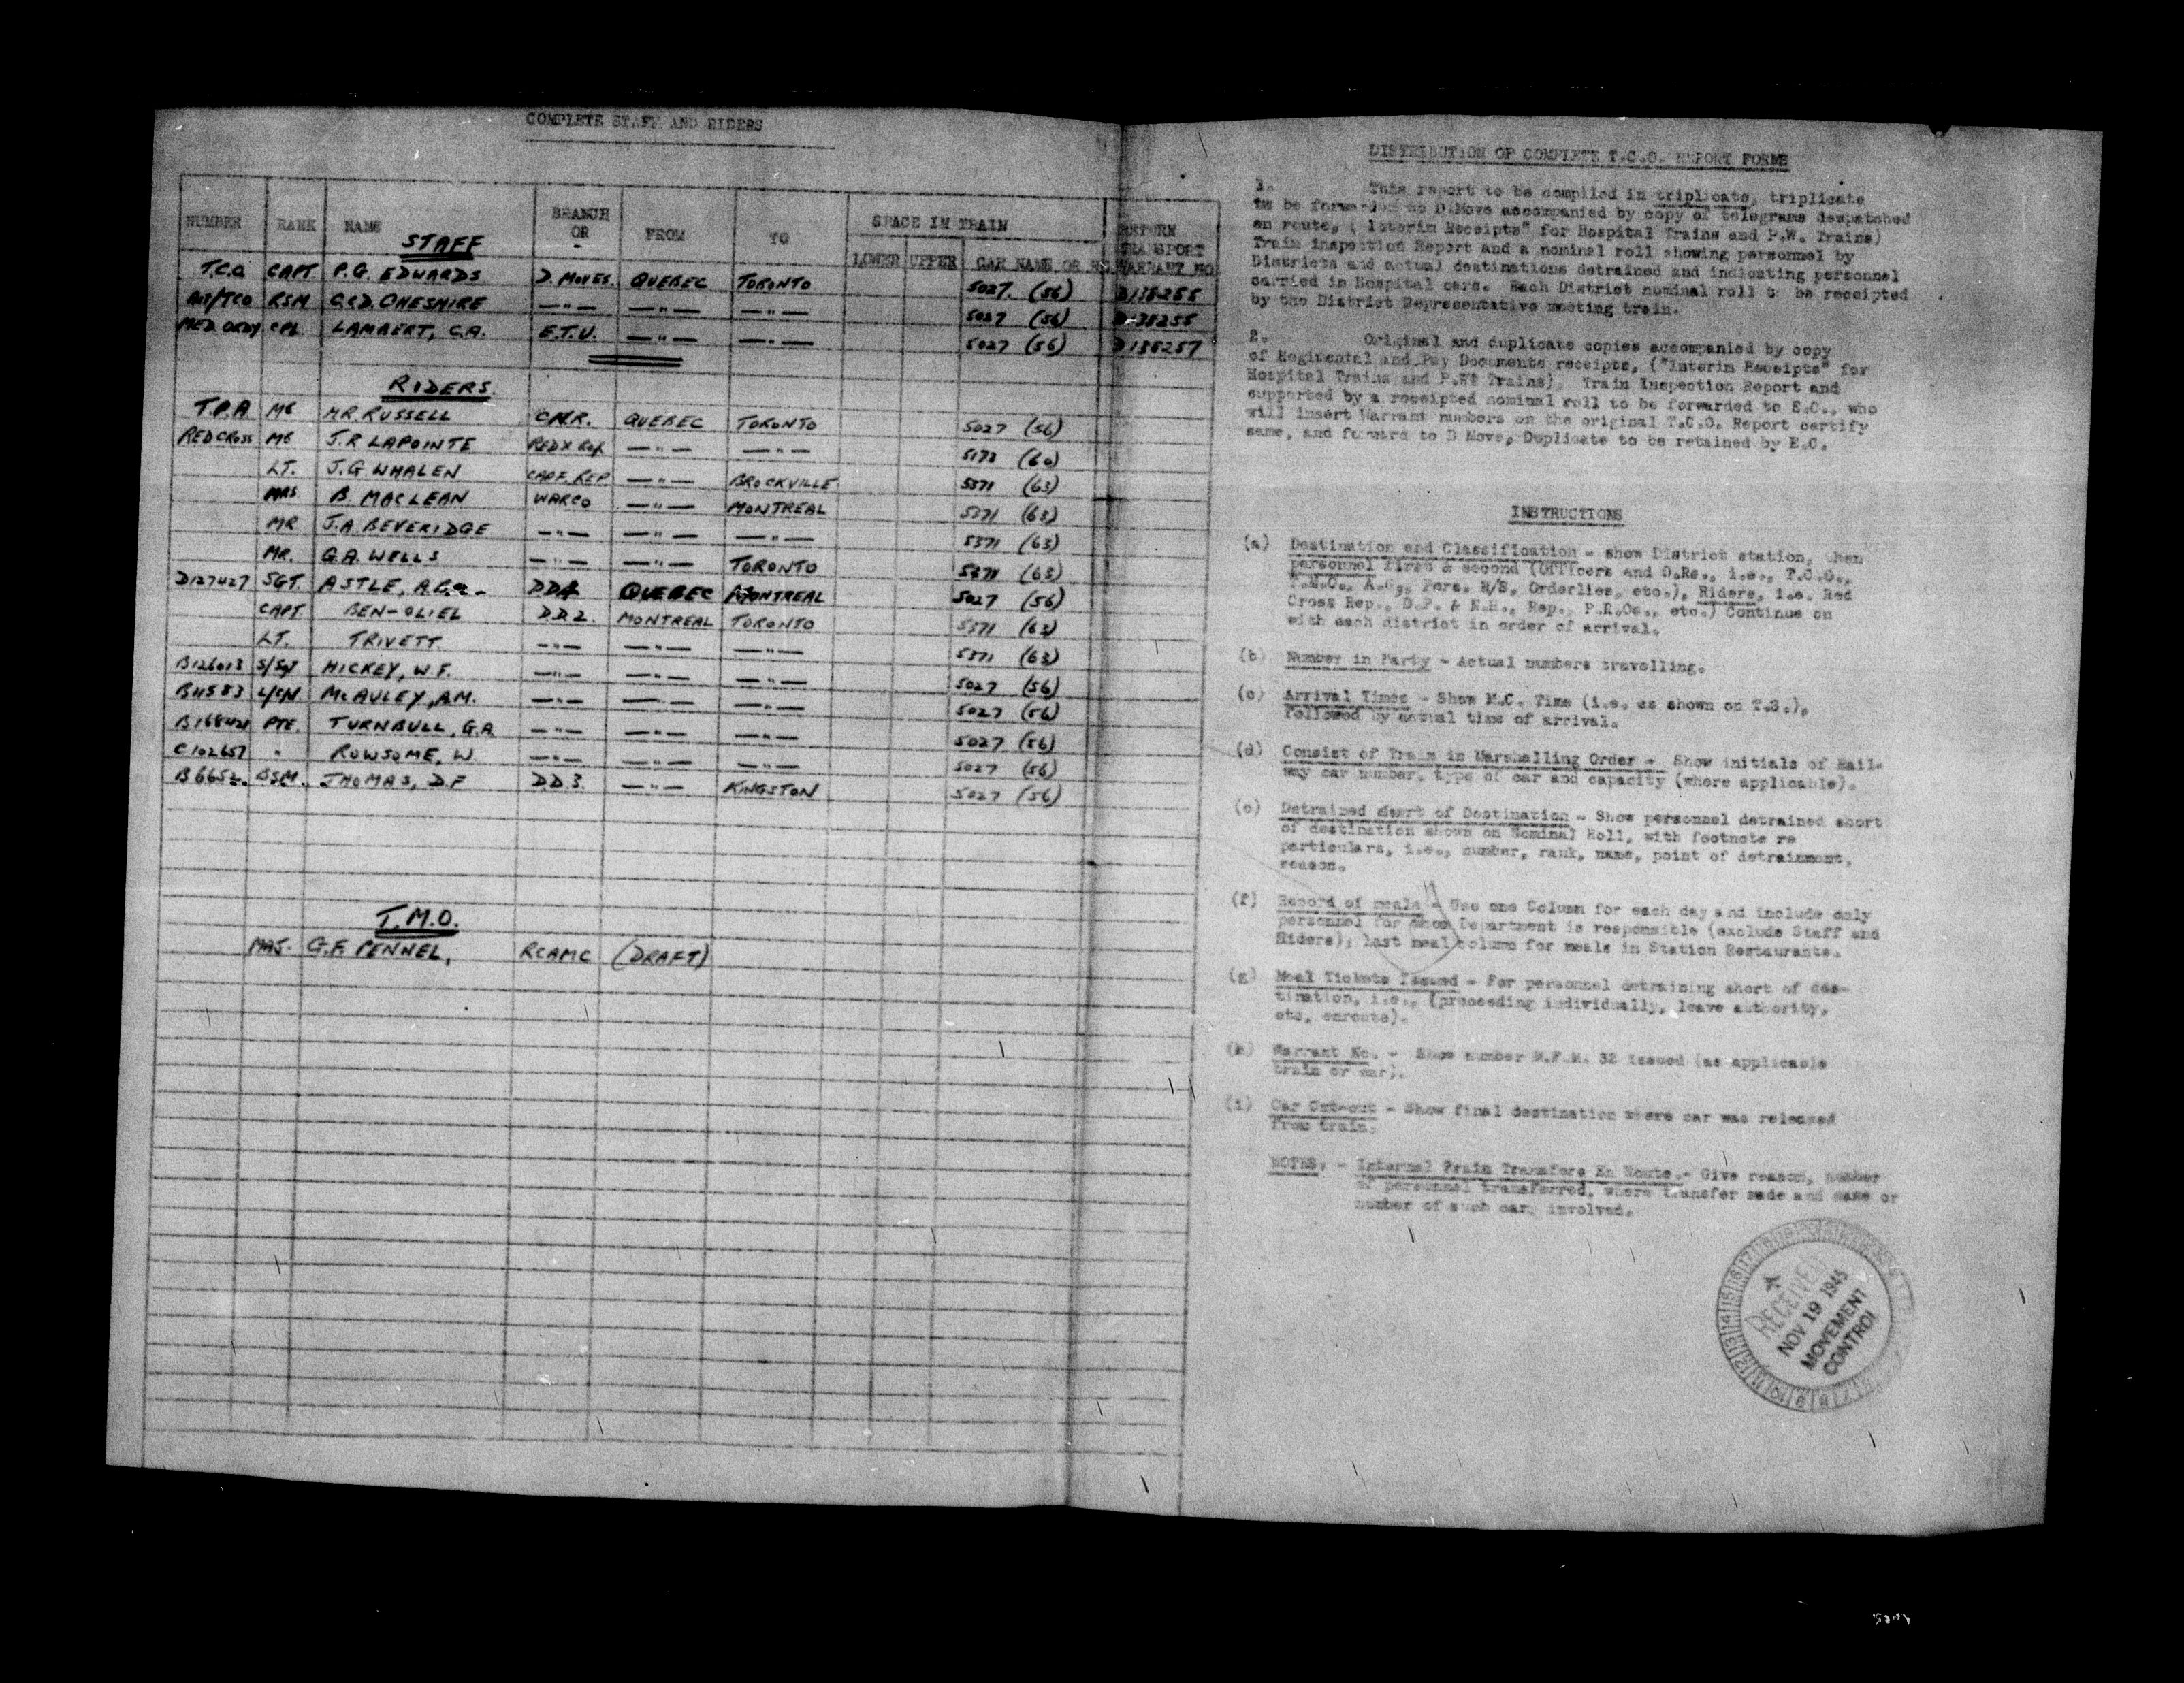 COMPLETE STAFF AND RIDERS
NUMBER RANK NAME BRANCH OR FROM TO SPACE IN TRAIN LOWER UPPER CAR NAME OR NO RETURN TRANSPORT WARRANT NO
STAFF
T.C.O. CAPT. P.G. EDWARDS D. MOVES. QUEBEC TORONTO 5027. (56)
RSM CHESHIRE —"— —"— —"— 5027 (56)
MED. ORDY CPL LAMBERT, C.A. E.T.U. —"— —"— 5027 (56) D138257
RIDERS.
T.P.A MR MR. RUSSELL C.N.R. QUEBEC TORONTO 5027 (56)
RED CROSS MR J.R LAPOINTE RED X REP. —"— —"— 5173 (60)
LT. J.G. WHALEN REP —"— BROCKVILLE 5371 (63)
MRS B. MACLEAN WARCO —"— MONTREAL 5371 (63)
MR J.A. BEVERIDGE —"— —"— —"— 5371 (63)
MR. G.A. WELLS —"— —"— TORONTO 5371 (63)
D127427 SGT. ASTLE, QUEBEC MONTREAL 5027 (56)
CAPT BEN-OLIEL D.D.2. MONTREAL TORONTO 5371 (63)
LT. TRIVETT —"— —"— —"— 5371 (63)
B126013 S/Sgt HICKEY, W.F. —"— —"— —"— 5027 (56)
B11583 McAULEY, A.M. —"— —"— —"— 5027 (56)
PTE. TURNBULL, G.A —"— —"— —"— 5027 (56)
C102657 " ROWSOME, W. —"— —"— —"— 5027 (56)
THOMAS, D.F D.D.3. —"— KINGSTON 5027 (56)
T.M.O.
MAJ. G.F. PENNEL, RCAMC (DRAFT)
DISTRIBUTION OF COMPLETE T.C.O. REPORT FORMS
1. This report to be compiled in triplicate, triplicate
to be forwarded to D Move accompanied by copy of telegrams despatched
en route, ( Interim Receipts" for Hospital Trains and P.W. Trains)
Train inspection Report and a nominal roll showing personnel by
Districts and actual destinations detrained and indicating personnel
carried in Hospital cars. Each District nominal roll to be receipted
by the District Representative meeting train.
2. Original and duplicate copies accompanied by copy
of Regimental and Pay Documents receipts, ("Interim Receipts" for
Hospital Trains and P.W. Trains), Train Inspection Report and
supported by a receipted nominal roll to be forwarded to E.O., who
will insert Warrant numbers on the original T.C.O. Report certify
same, and forward to D Move, Duplicate to be retained by E.O.
INSTRUCTIONS
(a) Destination and Classification - show District station, then
personnel first & second (Officers and O.Rs., i.e., T.C.O.,
T.M.O., Pers. H/S, Orderlies, etc.), Riders, i.e. Red
Cross Rep., D.P. & N.H., Rep., P.R.Os., etc.) Continue on
with each district in order of arrival.
(b) Number in Party - Actual numbers travelling.
(c) Arrival Times - Show M.C. Time (i.e. as shown on T.S.),
followed by actual time of arrival.
(d) Consist of Train in Marshalling Order - Show initials of Rail-
way car number, type of car and capacity (where applicable).
(e) Detrained Short of Destination - Show personnel detrained short
of destination shown on Nominal Roll, with footnote re
particulars, i.e., number, rank, name, point of detrainment,
reason.
(f) Record of meals - Use one Column for each day and include only
personnel for whom Department is responsible (exclude Staff and
Riders); last meal column for meals in Station Restaurants.
(g) Meal Tickets Issued - For personnel detraining short of des-
tination, i.e., (proceeding individually, leave authority,
etc, enroute).
(h) Warrant No. - Show number M.F.M. 32 issued (as applicable
train or car).
(i) Car Cut-out - Show final destination where car was released
from train.
NOTES: - Internal Train Transfers En Route.- Give reason, number
of personnel transferred, where transfer made and name or
number of such car, involved.
RECEIVED
NOV 19 1945
MOVEMENT
CONTROL